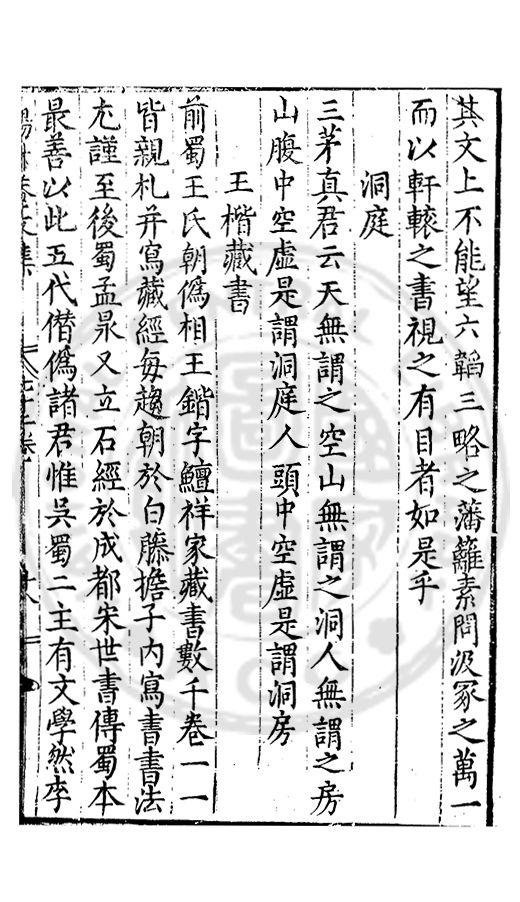 其文上不能望六韜三略之藩籬素問汲冢之萬一
而以軒轅之書視之有目者如是乎
洞庭
三茅真君云天無謂之空山無謂之洞人無謂之房
山腹中空虛是謂洞庭人頭中空虛是謂洞房
王楷藏書
前蜀王氏朝僞相王鍇字鱣祥家藏書數千卷一一
皆親札并寫藏經每趨朝於白籐擔子内寫書書法
尤謹至後蜀孟昶又立石經於成都宋世書傳蜀本
最善以此五代僣僞諸君惟吳蜀二主有文學然李